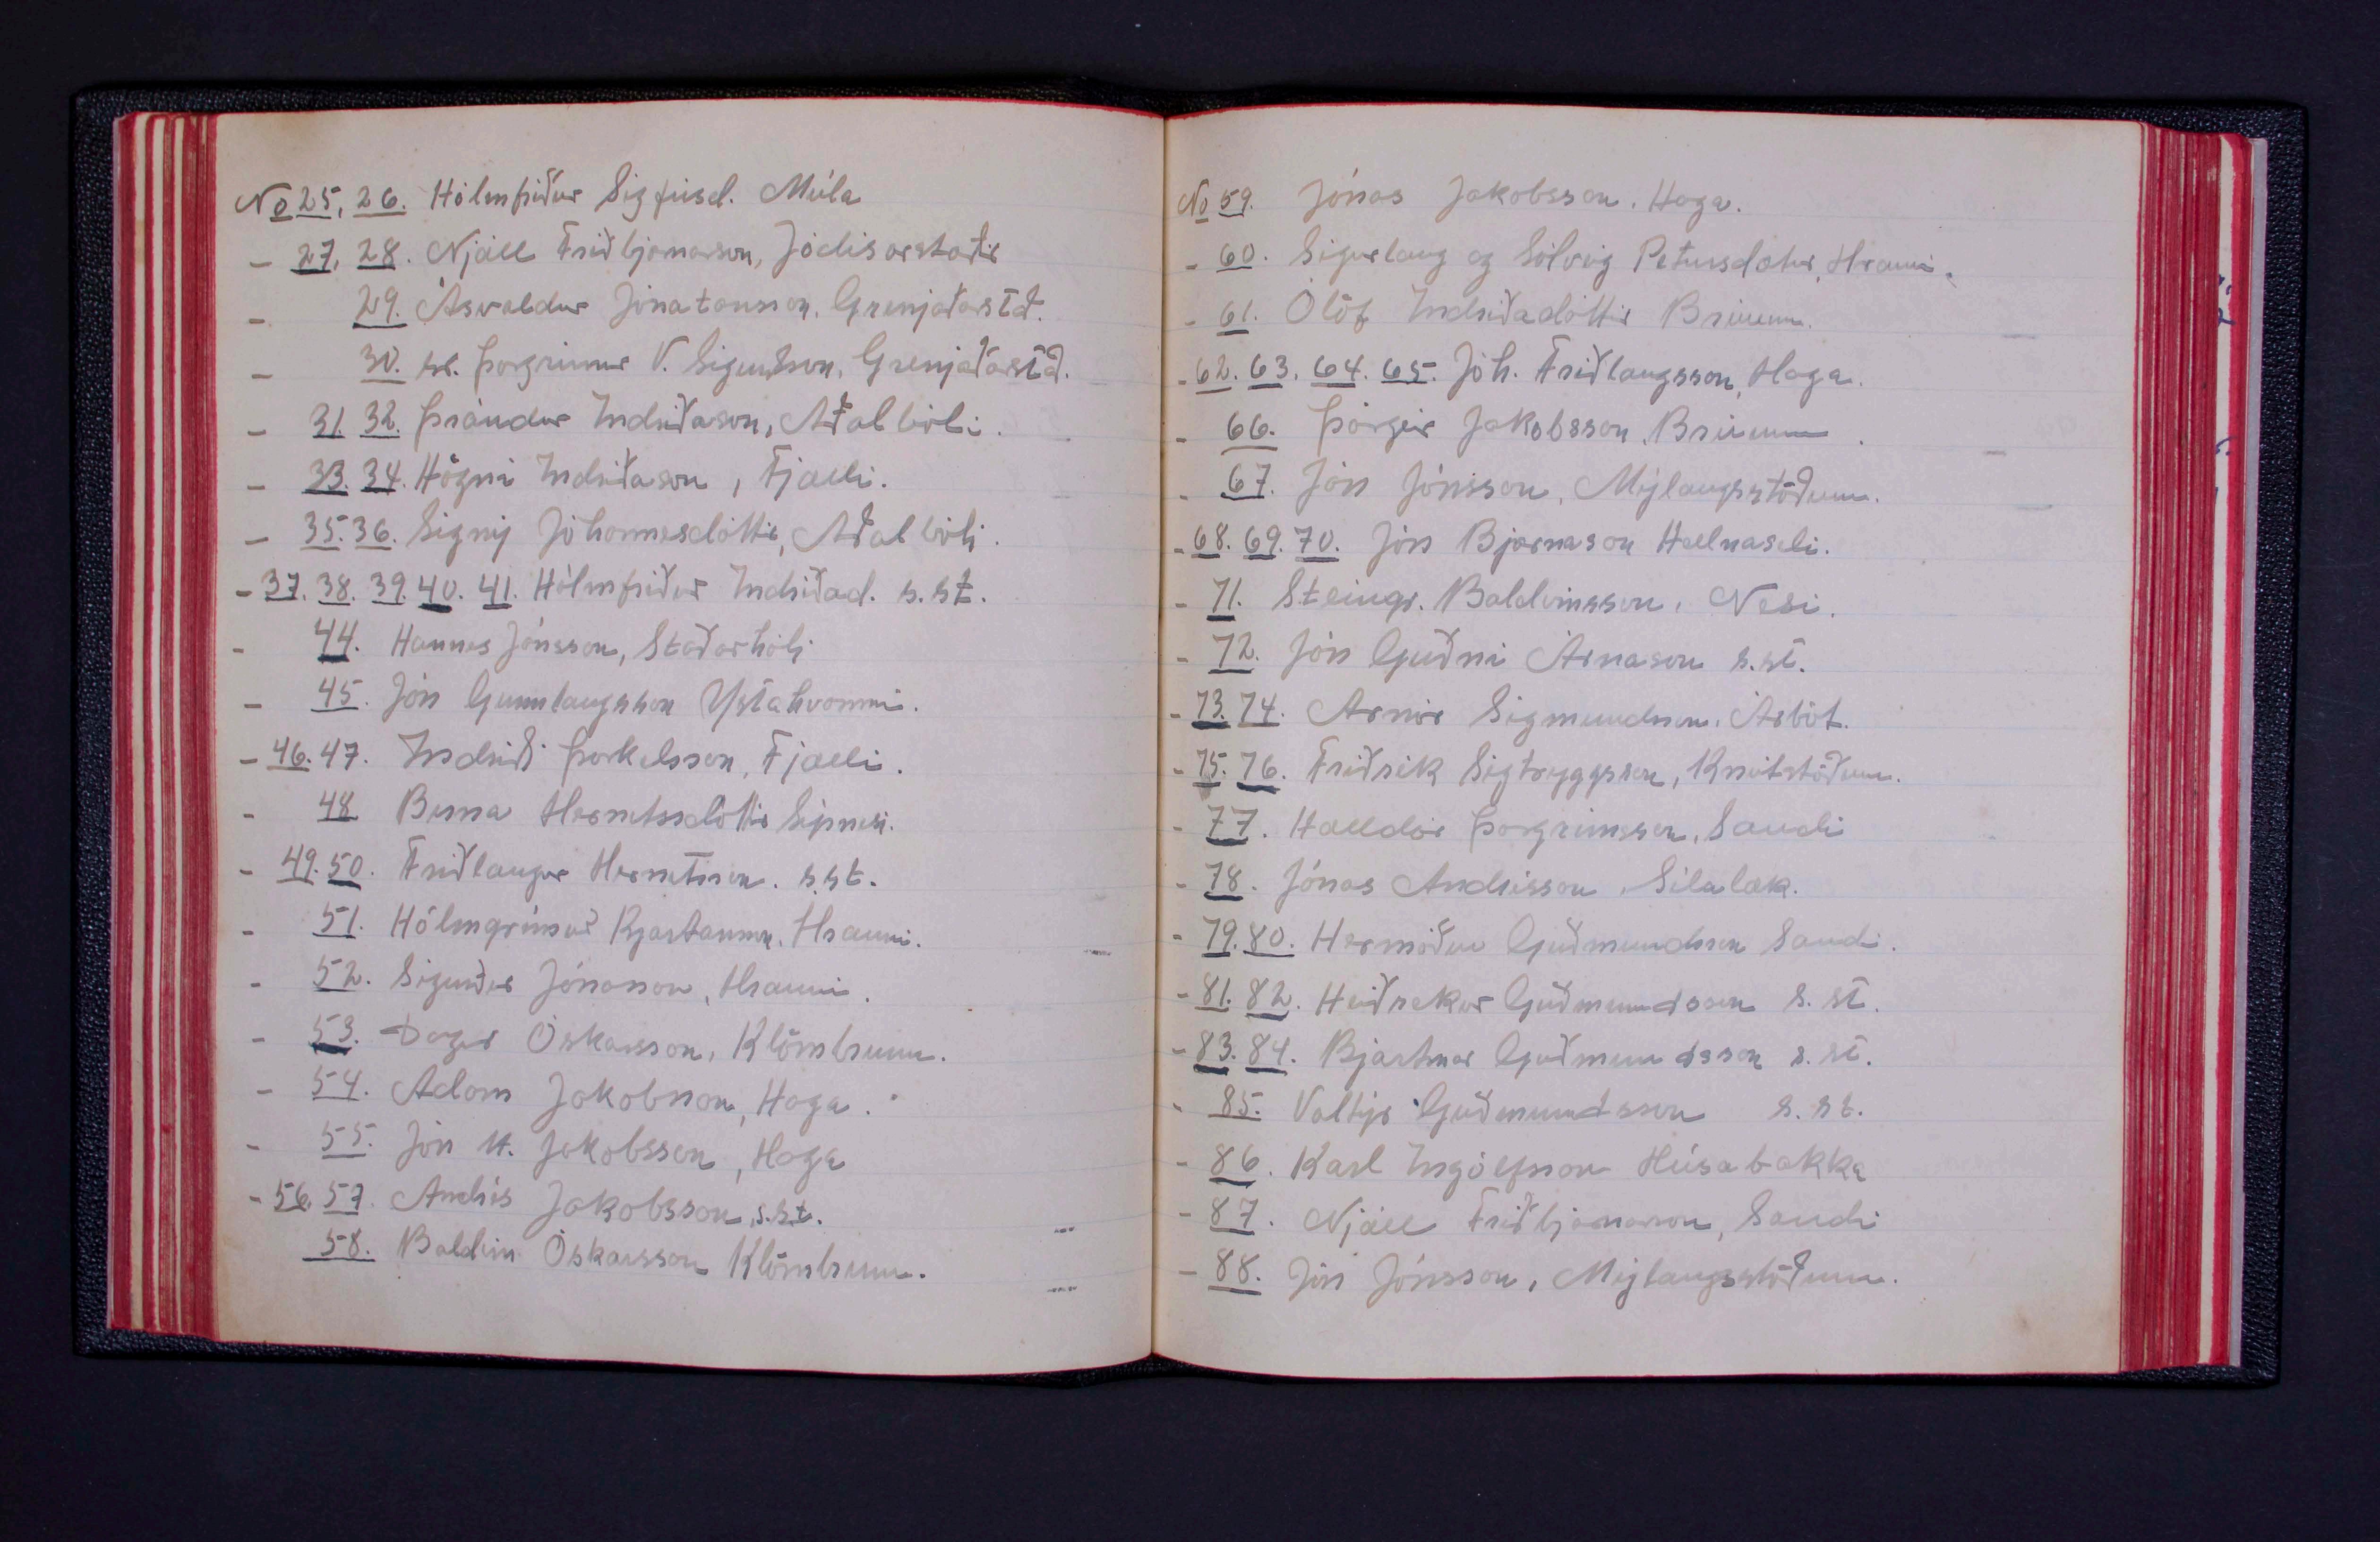 No 25, 26. Hólmfríður Sigfúsd. Múla
- 27, 28. Njáll Friðbjarnarson, Jódísarstaðir
- 29. Ásvaldur Jónatansson, Grenjaðarstað.
- 30. sr. Þorgrímur V. Sigurðsson, Grenjaðarstað.
- 31. 32. Þrándur Indriðason, Aðalbóli.
- 33. 34. Högni Indriðason, Fjalli.
- 35. 36. Signý Jóhannesdóttir, Aðalbóli.
- 37. 38. 39. 40. 41. Hólmfríður Indriðad. s. st.
- 44. Hannes Jónsson, Staðarhóli
- 45. Jón Gunnlaugsson Ystahvammi.
- 46. 47. Indriði Þorkelsson, Fjalli.
- 48 Hernitsdóttir Sýrnesi.
- 49. 50. Friðlaugur Hernitsson. s. st.
- 51. Hólmgrímur Kjartansson, Hrauni.
- 52. Sigurður Jónasson, Hrauni.
- 53. Dagur Óskarsson, Klömbrum.
- 54. Adam Jakobsson, Haga.
- 55. Jón H. Jakobsson, Haga
- 56. 57. Andrés Jakobsson, s. st.
58. Baldvin Óskarsson Klömbrum.
No 59. Jónas Jakobsson. Haga.
- 60. Sigurlaug og Sólveig Petursdætur, Hrauni.
- 61. Ólöf Indriðadóttir Brúum.
- 62. 63. 64. 65. Jóh. Friðlaugsson, Haga.
- 66. Þórgeir Jakobsson, Brúum.
- 67. Jón Jónsson, Mýlaugsstöðum.
- 68. 69. 70. Jón Bjarnason Hellnaseli.
- 71. Steingr. Baldvinsson, Nesi.
- 72. Jón Guðni Árnason s. st.
- 73. 74. Arnór Sigmundsson. Árbót.
- 75. 76. Friðrik Sigtryggsson, Knútstöðum.
- 77. Halldór Þorgrímsson, Sandi
- 78. Jónas Andrésson, Sílalæk.
- 79. 80. Hermóður Guðmundsson Sandi.
- 81. 82. Heiðrekur Guðmundsson s. st.
- 83. 84. Bjartmar Guðmundsson s. st.
- 85. Valtýr Guðmundsson s. st.
- 86. Karl Ingólfsson Húsabakka
- 87. Njáll Friðbjarnarson, Sandi
- 88. Jón Jónsson, Mýlaugsstöðum.